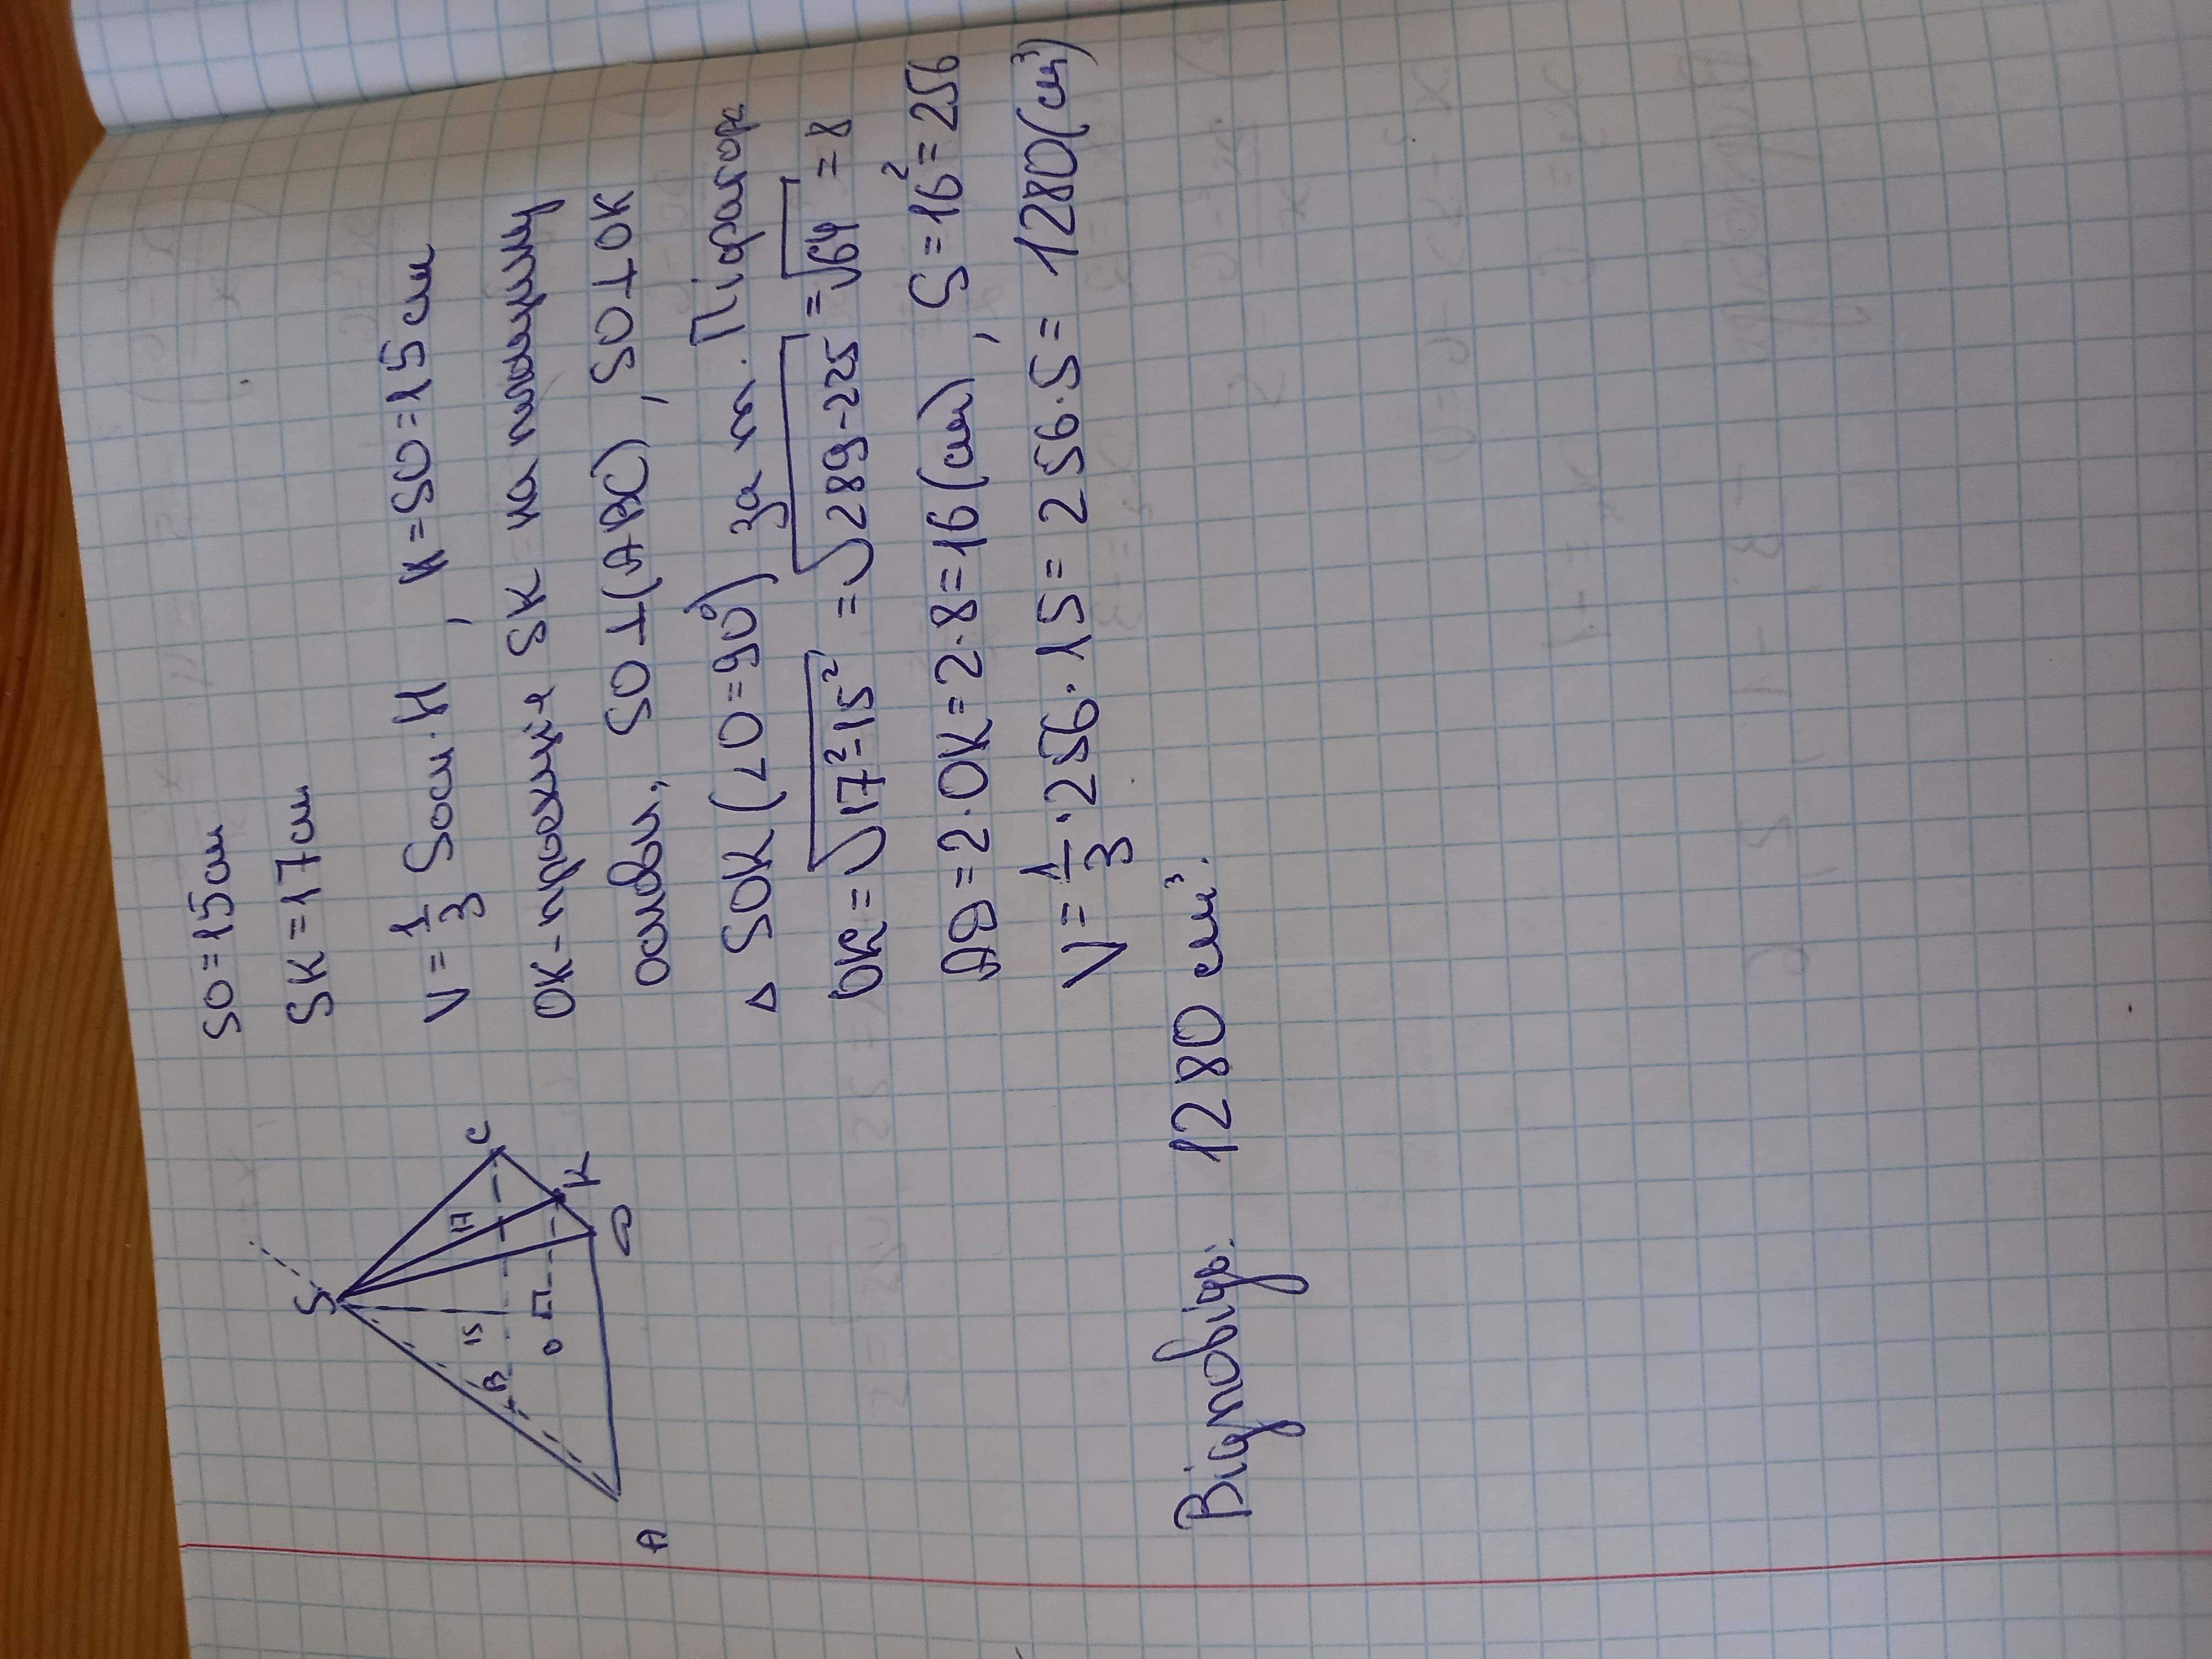 SO=15см
SK=17см
V=1/3 Sосн·H, H=SO=15см
OK-проекція SK на площину
основи, SO⊥(ABC), SO⊥OK
△ SOK (∠O=90°) за т. Піфагора
OK=√17²-15² =√289-225=√64 =8
AD=2·OK=2·8=16(см), S=16²=256
V=1/3·256·15=256·5=1280(см³)
Відповідь: 1280 см³.
S
17
15
B
O
C
K
D
A